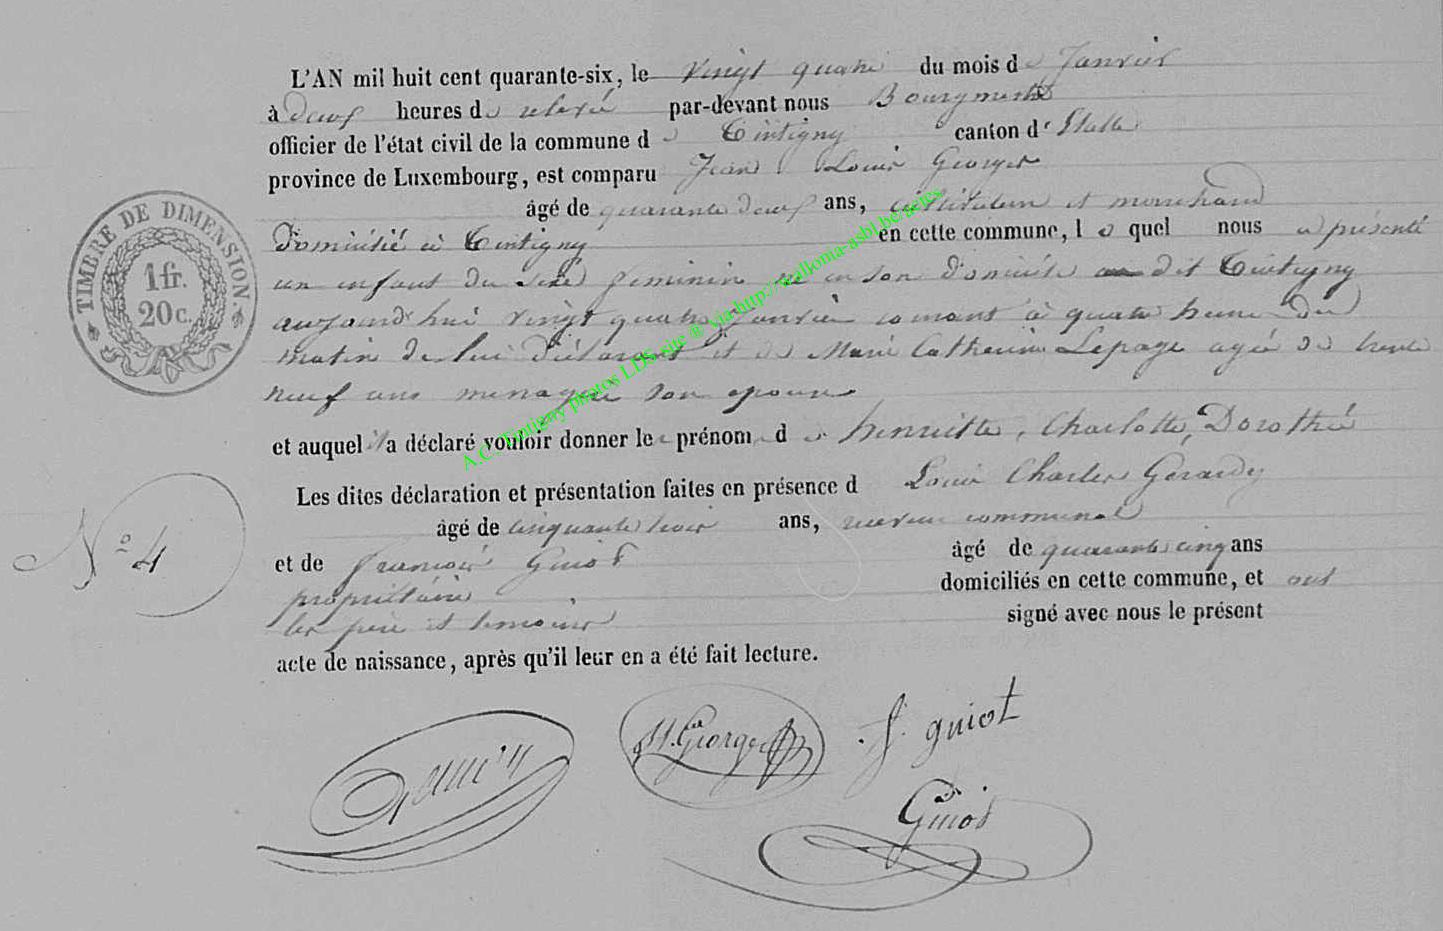 L'AN mil huit cent quarante-six, le vingt quatre du mois de Janvier
à deux heures de relevée par-devant nous Bourgmestre
officier de l'état civil de la commune de Tintigny canton d'Etalle
province de Luxembourg, est comparu Jean Louis Georges
âgé de quarante deux ans, instituteur et marchand
domicilié à Tintigny en cette commune, lequel nous a présenté
un enfant du sexe féminin né en son domicile au dit Tintigny
aujourd'hui vingt quatre Janvier courant à quatre heures du
matin de lui déclarant et de Marie Catherine Lepage agée de trente
neuf ans menagère son epouse
et auquel il a déclaré vouloir donner le prénom de henriette, Charlotte, Dorothée
Les dites déclaration et présentation faites en présence d Louis Charles Gérardy
âgé de cinquante trois ans, receveur communal
et de francois Guiot âgé de quarante cinq ans
propriétaire domiciliés en cette commune, et ont
les père et temoins signé avec nous le présent
acte de naissance, après qu'il leur en a été fait lecture.
TIMBRE DE DIMENSION.
1 fr.
20 c.
N° 4
Georges
f. guiot
Guiot
A.C. Tintigny photos LDS site ® via-http://wallonia-asbl.be/actes